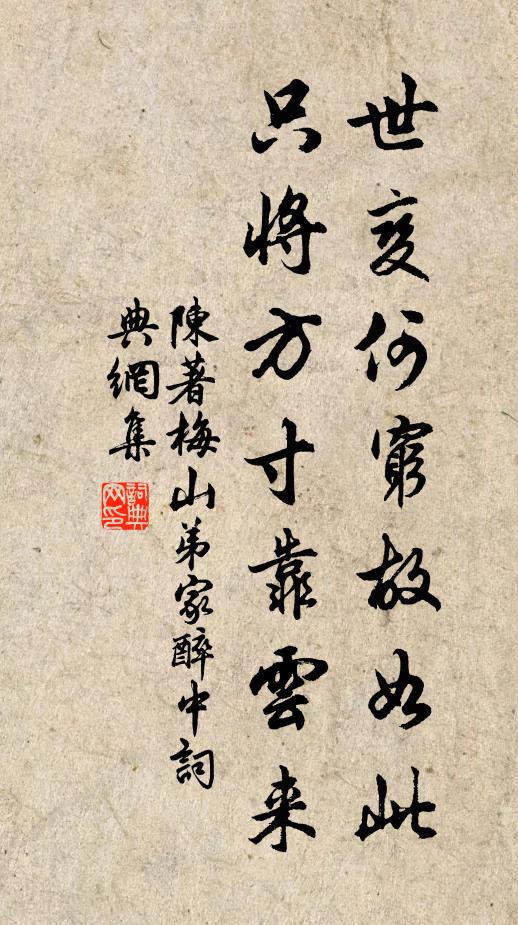 世变何穷故如此
只将方寸靠雲来
陳著梅山弟家醉中詞
典網集
詞典网印